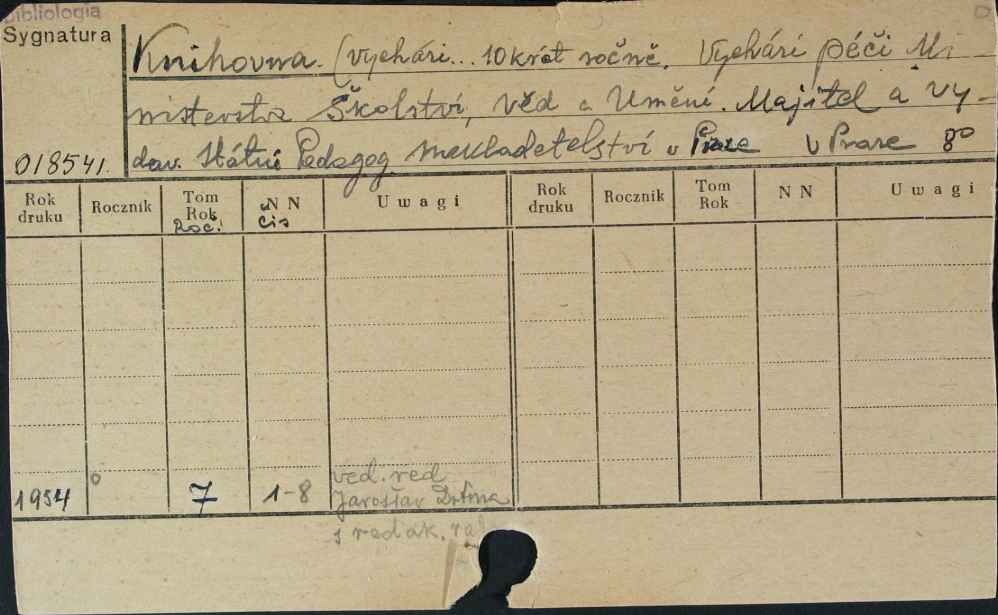 bibliologia
Sygnatura
Knihovna. (vychári... 10 krát ročně. Vychári péči Mi
nisterstva Školství, věd a Umění. Majitel a vy-
dav. Státní Pedagog. nakladetelství v Praze v Praze 8º
018541.
Rok druku Rocznik Tom Rok Roč. N N čis Uwagi Rok druku Rocznik Tom Rok N N Uwagi
1954 7 1-8 ved. red
Jaroslav Drtina
s redak.